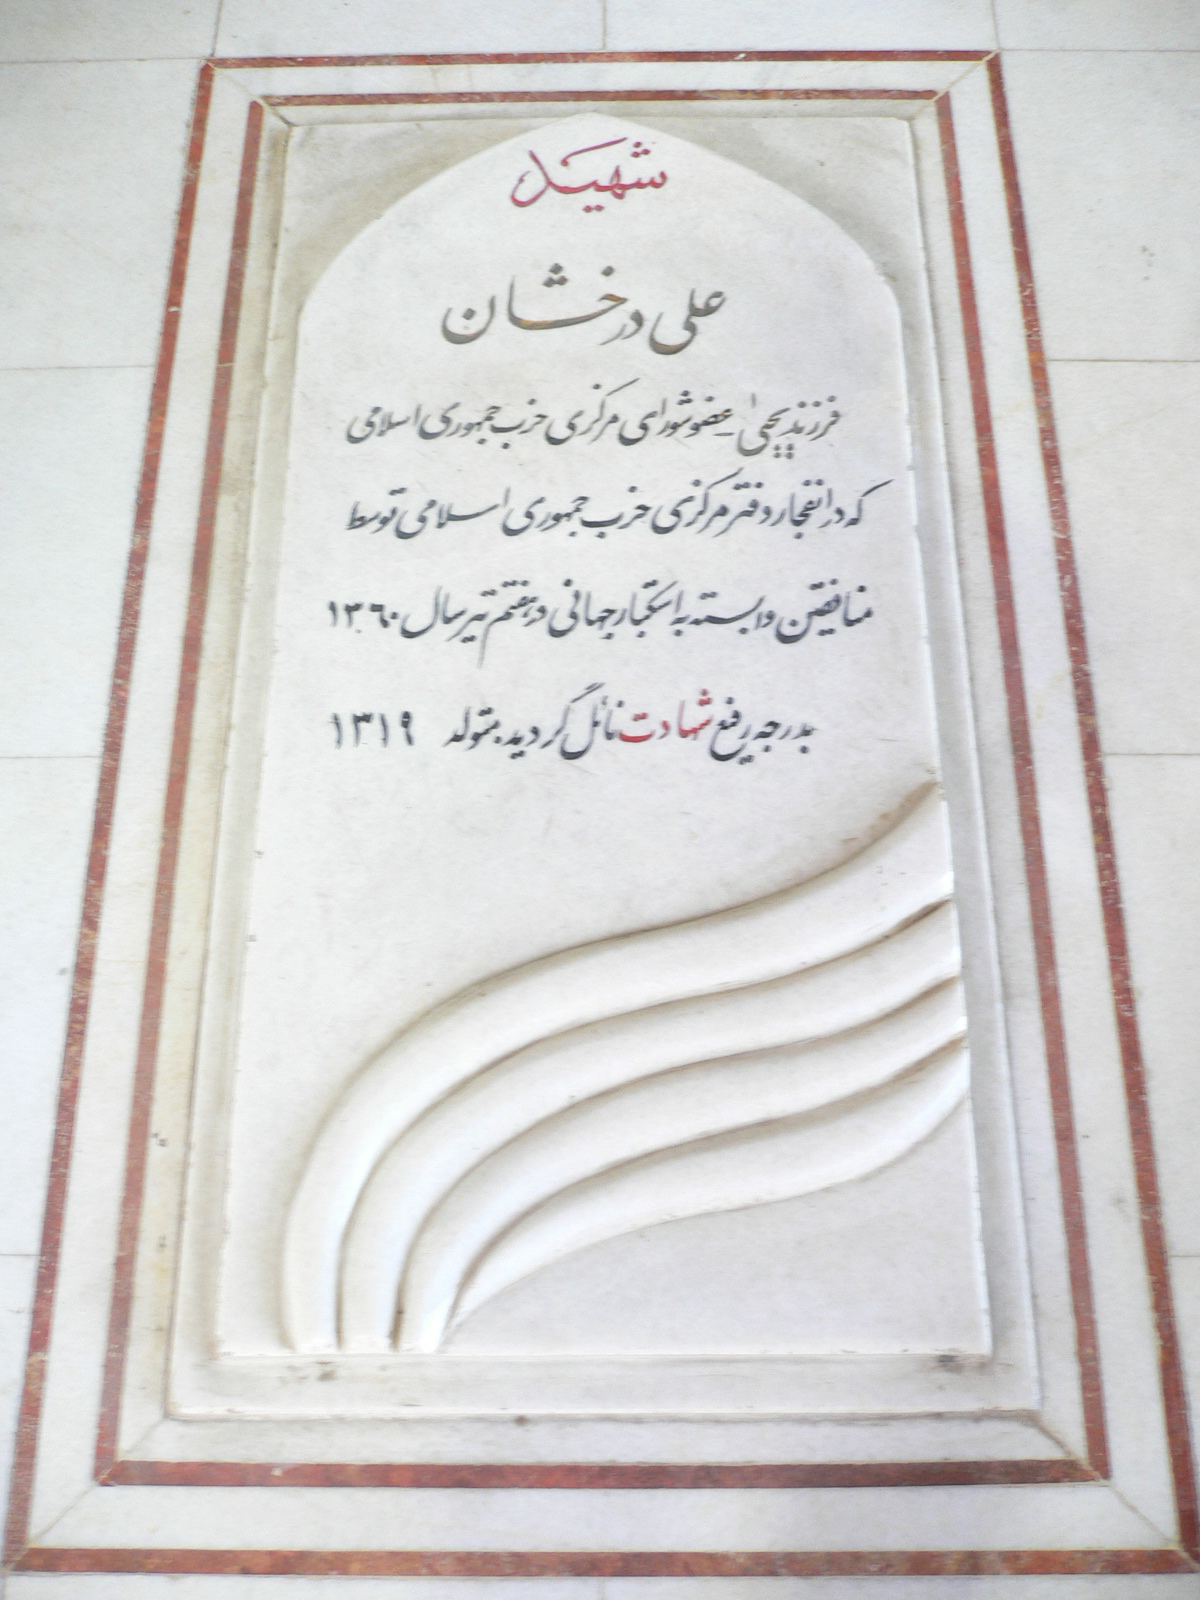 شهید
علی درخشان
فرزند یحیی ـ عضو شورای مرکزی حزب جمهوری اسلامی
که در انفجار دفتر مرکزی حزب جمهوری اسلامی توسط
منافقین وابسته به استکبار جهانی در هفتم تیر سال ۱۳۶۰
بدرجه رفیع شهادت نائل گردید. متولد ۱۳۱۹